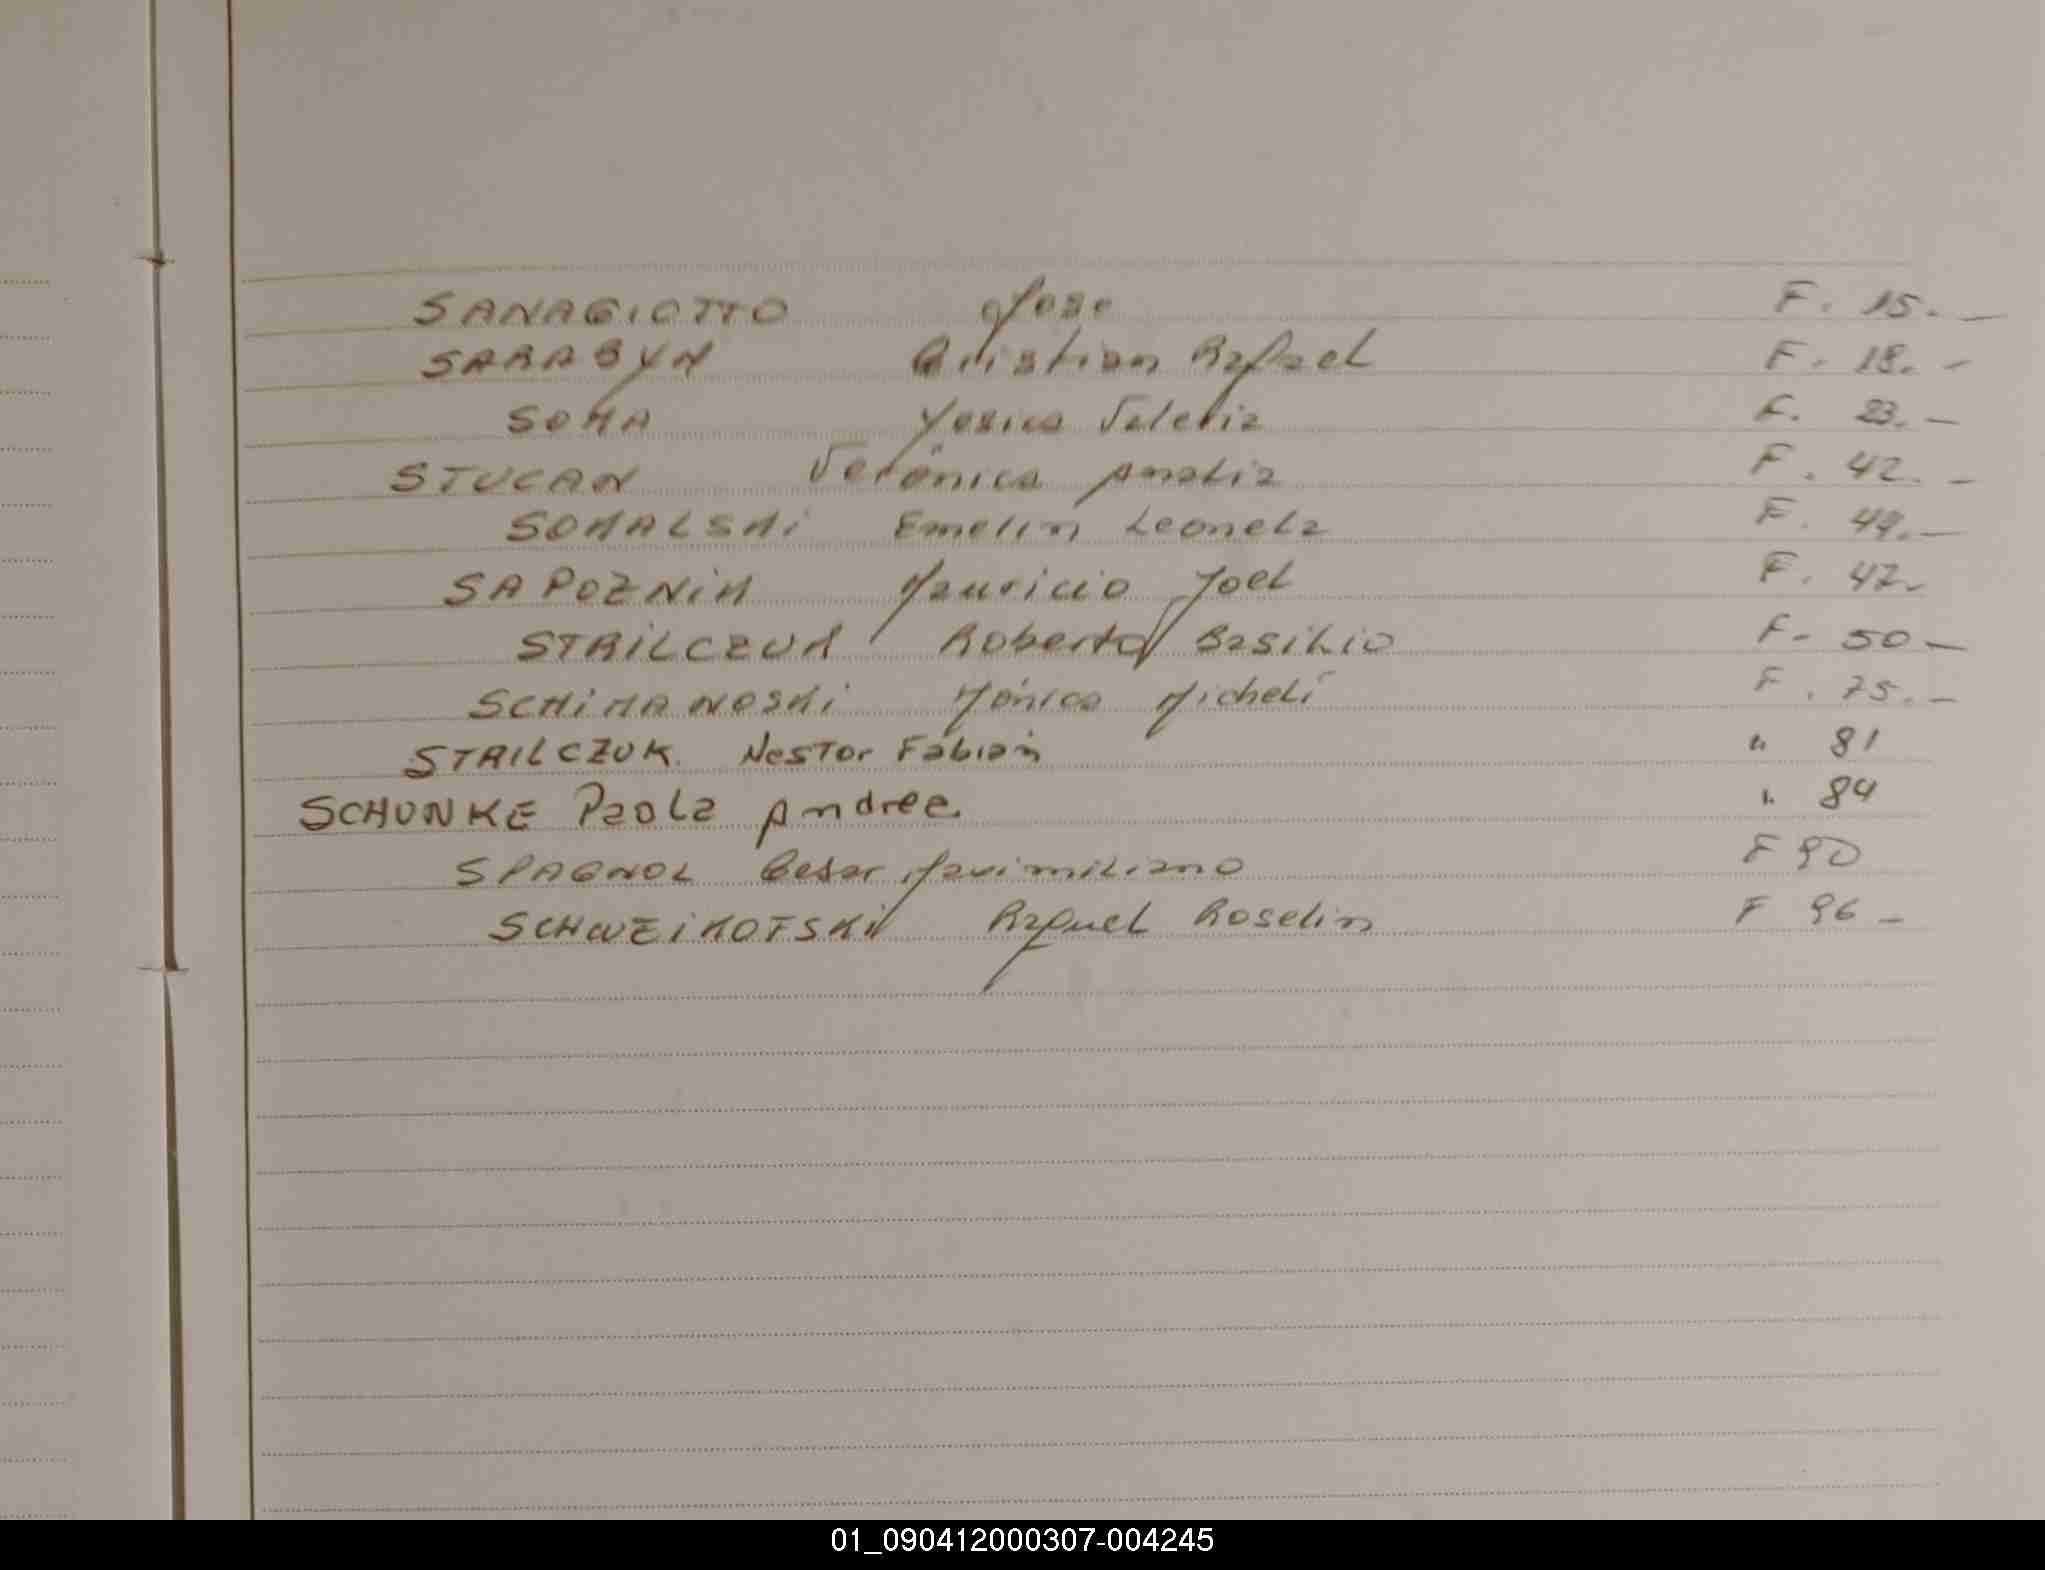 SANAGIOTTO Jose F. 15.-
SARABYN Cristian Rafael F. 18.-
SOKA Yesica Valeria F. 23.-
STUCAN Verónica Analia F. 42.-
SOKALSKi Emelin Leonela F. 44.-
SAPOZNiK Mauricio Joel F. 47.-
STRiLCZUK Roberto Basilio F. 50-
SCHiMANOSKi Mónica Micheli F. 75.-
STRILCZUK. Nestor Fabian " 81
SCHUNKE Paola Andree. " 84
SPAGNOL Cesar Maximiliano F 90
SCHWEiKOFSKi Rafael Roselin F 96-
01_090412000307-004245